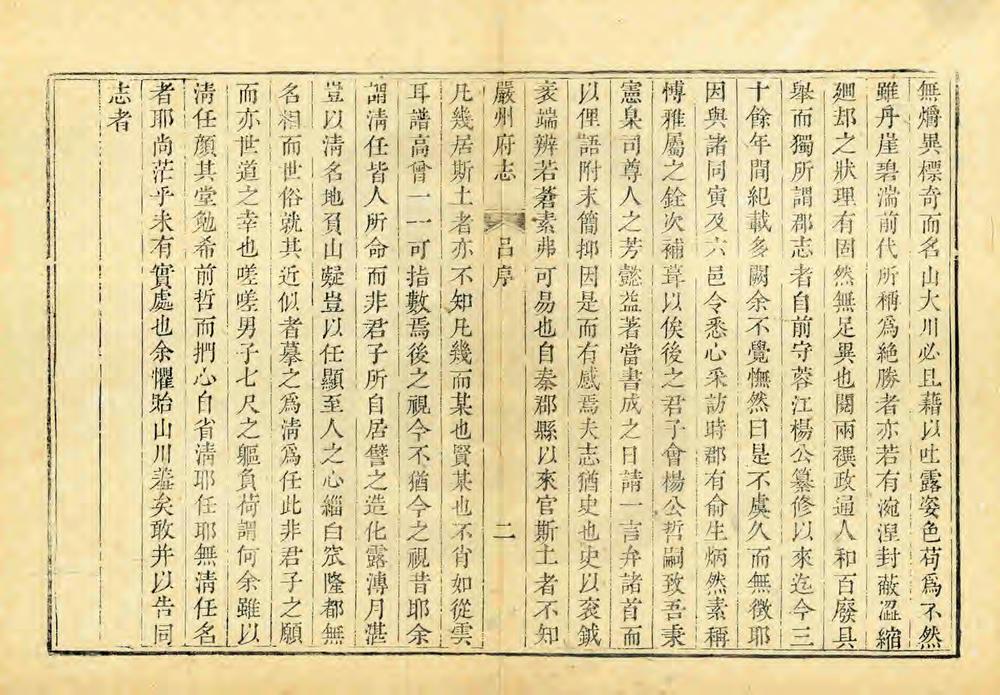 無爝異標奇而名山大川必且藉以吐露姿色苟為不然
雖丹崖碧湍前代所稱為絶勝者亦若有涴涅封蔽澀縮
𢌞却之狀理有固然無足異也閱兩禩政通人和百廢具
舉而獨所謂郡志者自前守蓉江楊公纂修以來迄今三
十餘年間紀載多闕余不覺憮然曰是不虞久而無徵耶
因與諸同寅及六邑令悉心采訪時郡有俞生炳然素稱
博雅屬之銓次補葺以俟後之君子會楊公哲嗣致吾秉
憲臬司尊人之芳懿益著當書成之日請一言弁諸首而
以俚語附末簡抑因是而有感焉夫志猶史也史以袞鉞
衮端辨若蒼素弗可易也自秦郡縣以來官斯土者不知
嚴州府志
呂序
二
凡幾居斯土者亦不知凡幾而某也賢某也不肖如從雲
耳譜高曾一一可指數焉後之視今不猶今之視昔耶余
謂清任皆人所命而非君子所自居譬之造化露漙月湛
豈以清名地負山凝豈以任顯至人之心緇白窊隆都無
名相而世俗就其近似者摹之為清為任此非君子之願
而亦世道之幸也嗟嗟男子七尺之軀負荷謂何余雖以
清任顏其堂勉希前哲而捫心自省清耶任耶無清任名
者耶尚茫乎未有實處也余懼貽山川羞矣敢并以告同
志者